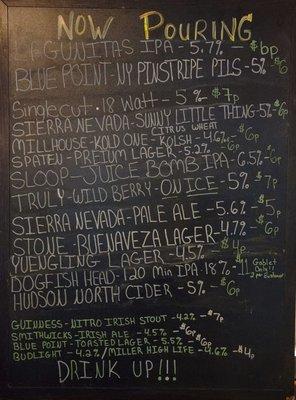 NOW POURING
LAGUNITAS IPA - 5.7% - $6p
BLUE POINT - NY PINSTRIPE PILS - 5% $6
Singlecut - 18 Watt - 5% - $7p
SIERRA NEVADA - SUNNY LITTLE THING - 5% $6p
CITRUS WHEAT
MILLHOUSE - KOLD ONE - KOLSH - 4.6% - $6p
SPATEN - PREIUM LAGER - 5.2% - $6p
SLOOP - JUICE BOMB IPA - 6.5% - $6p
TRULY - WILD BERRY - ON ICE - 5% $7p
SIERRA NEVADA - PALE ALE - 5.6% - $5p
STONE - BUENAVEZA LAGER - 4.7% - $6p
YUENGLING LAGER - 4.5% - $4p
DOGFISH HEAD - 120 min IPA - 18% - $11 Goblet Only!!
HUDSON NORTH CIDER - 5% - $6p
GUINNESS - NITRO IRISH STOUT - 4.2% - $7p
SMITHWICKS - IRISH ALE - 4.5% - $6p
BLUE POINT - TOASTED LAGER - 5.5% - $6p
BUDLIGHT - 4.2% / MILLER HIGH LIFE - 4.6% - $4p
DRINK UP!!!